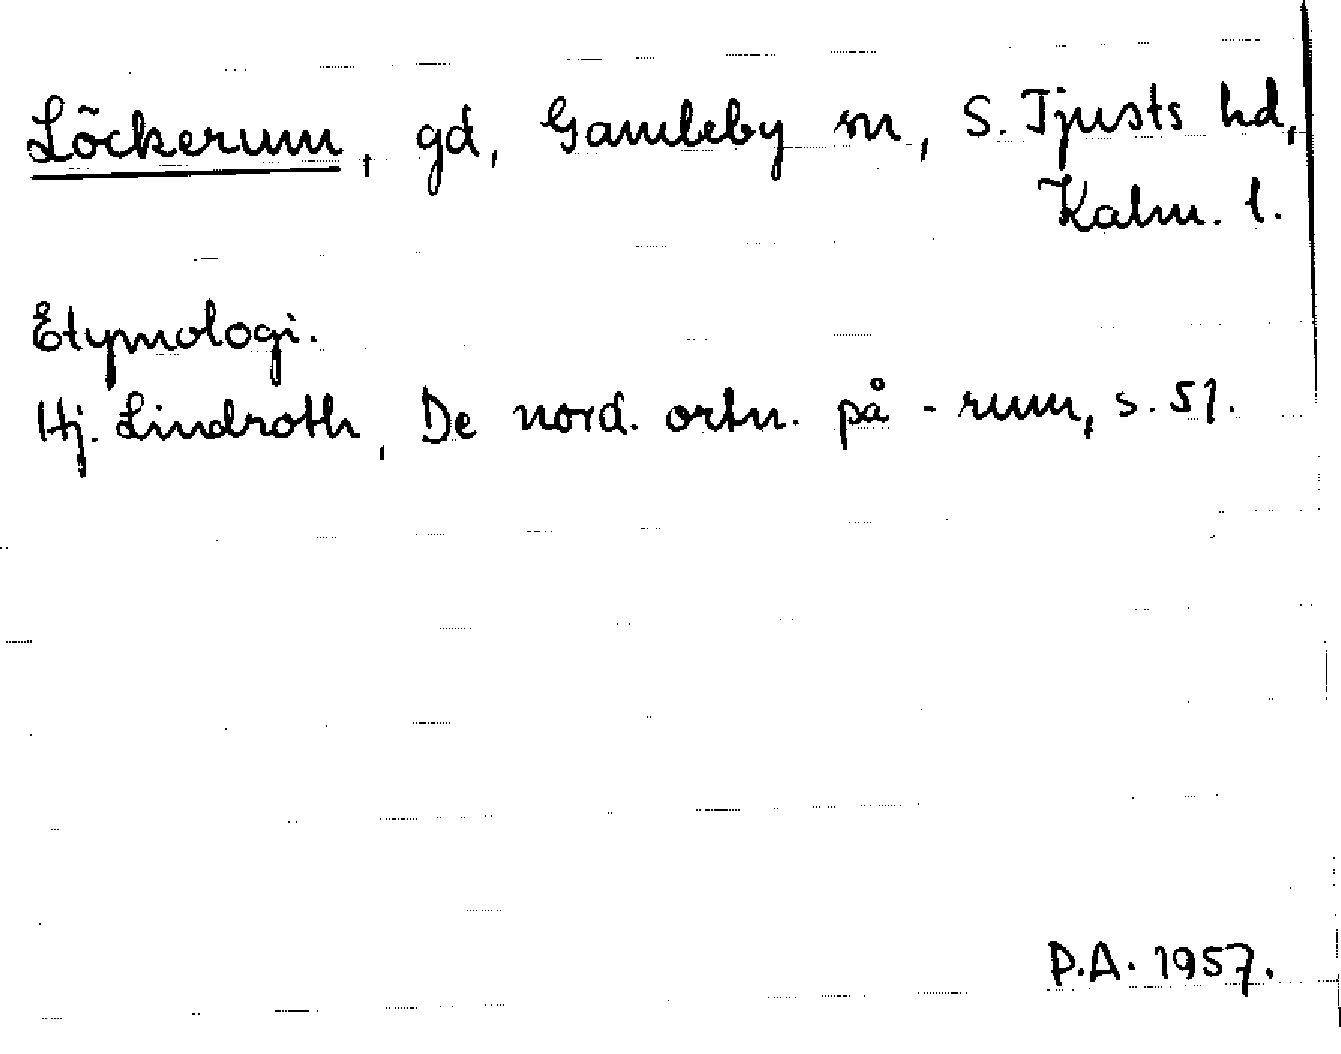 Löckerum, gd, Gamleby sn, S. Tjusts hd,
Kalm. l.
Etymologi.
Hj. Lindroth, De nord. ortn. på -rum, s. 51.
P.A. 1957.